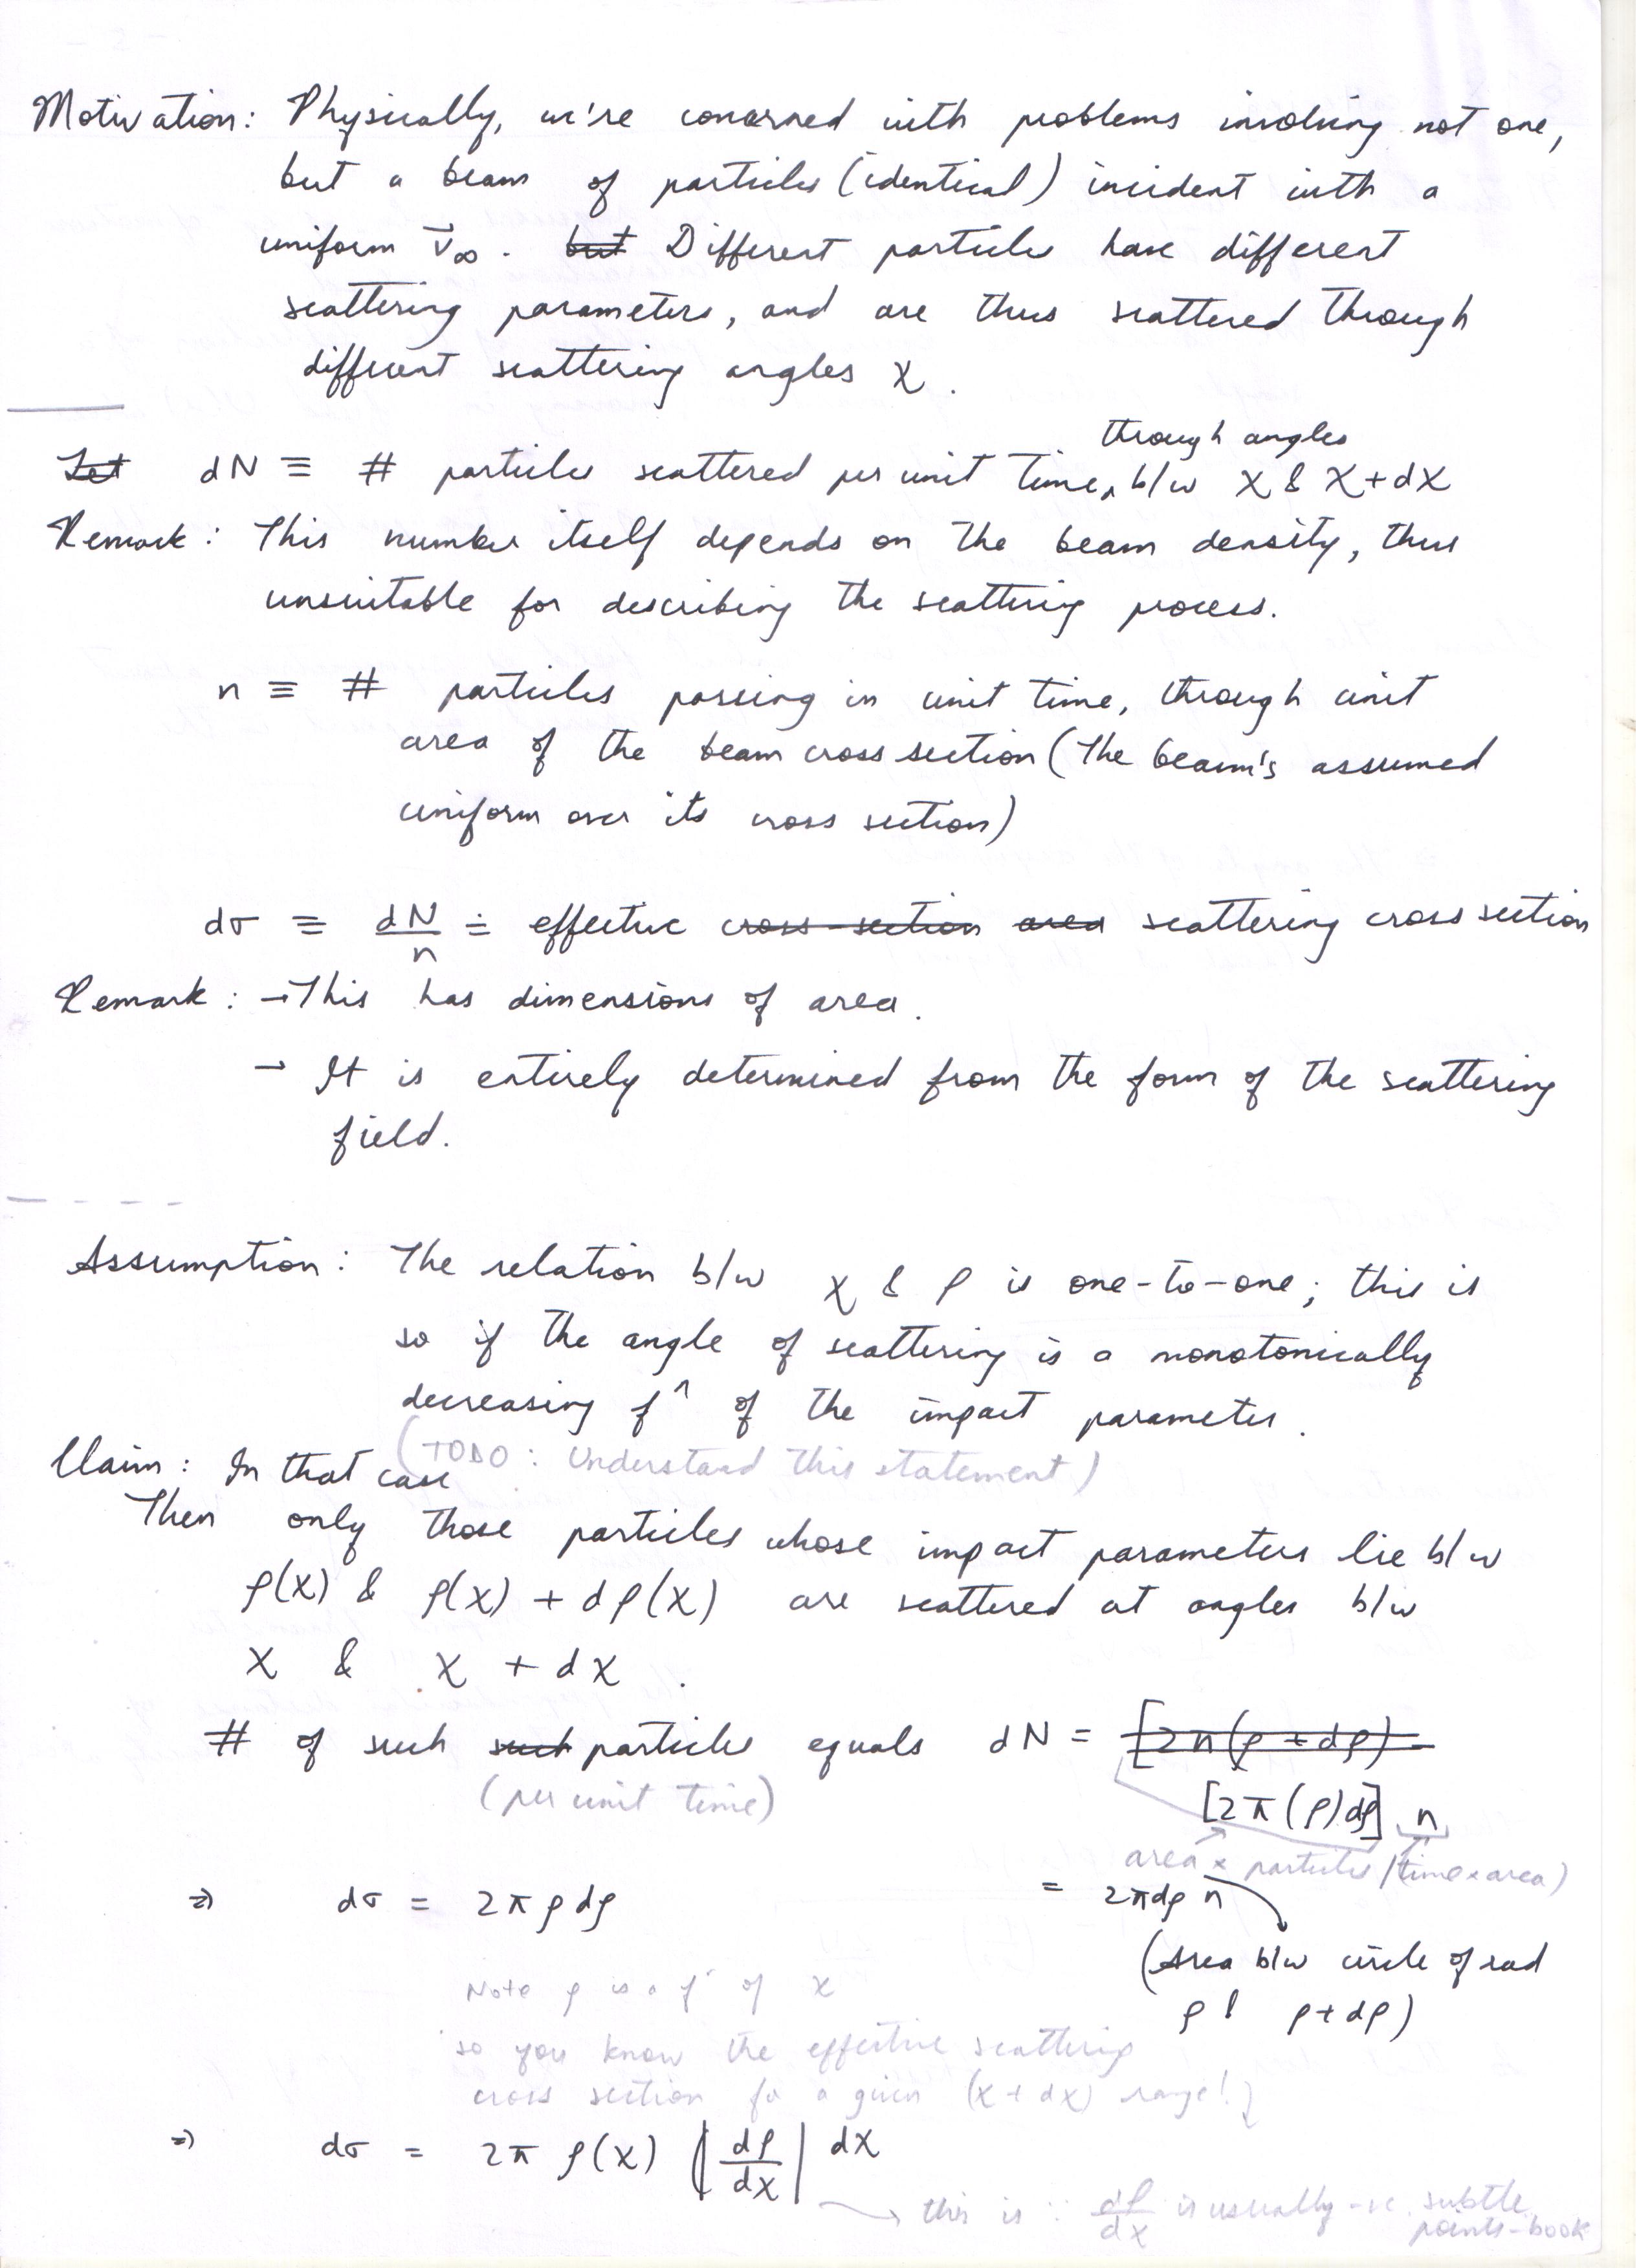 Motivation: Physically, we're concerned with problems involving not one,
but a beam of particles (identical) incident with a
uniform v⃗∞. ~~but~~ Different particles have different
scattering parameters, and are thus scattered through
different scattering angles χ.
through angles
~~Let~~ dN ≡ # particles scattered per unit time, b/w χ & χ+dχ
Remark: This number itself depends on the beam density, thus
unsuitable for describing the scattering process.
n ≡ # particles passing in unit time, through unit
area of the beam cross section (The beam's assumed
uniform over its cross section)
dσ ≡ dN/n ≐ effective ~~cross-section~~ ~~area~~ scattering cross section
Remark: → This has dimensions of area.
→ It is entirely determined from the form of the scattering
field.
Assumption: The relation b/w χ & ρ is one-to-one; this is
so if the angle of scattering is a monotonically
decreasing fⁿ of the impact parameter.
(TODO: Understand this statement)
Claim: In that case
Then only those particles whose impact parameters lie b/w
ρ(χ) & ρ(χ) + dρ(χ) are scattered at angles b/w
χ & χ + dχ.
# of such ~~such~~ particles equals dN = ~~[2π(ρ+dρ)-~~
(per unit time)
[2π(ρ)dρ] n
area × particles/(time×area)
= 2πdρ n
⇒ dσ = 2πρdρ
(Area b/w circle of rad
ρ & ρ+dρ)
Note ρ is a fⁿ of χ
so you know the effective scattering
cross section for a given (χ+dχ) range!
⇒ dσ = 2π ρ(χ) |dρ/dχ| dχ
→ this is ∵ dρ/dχ is usually -ve. subtle
points-book